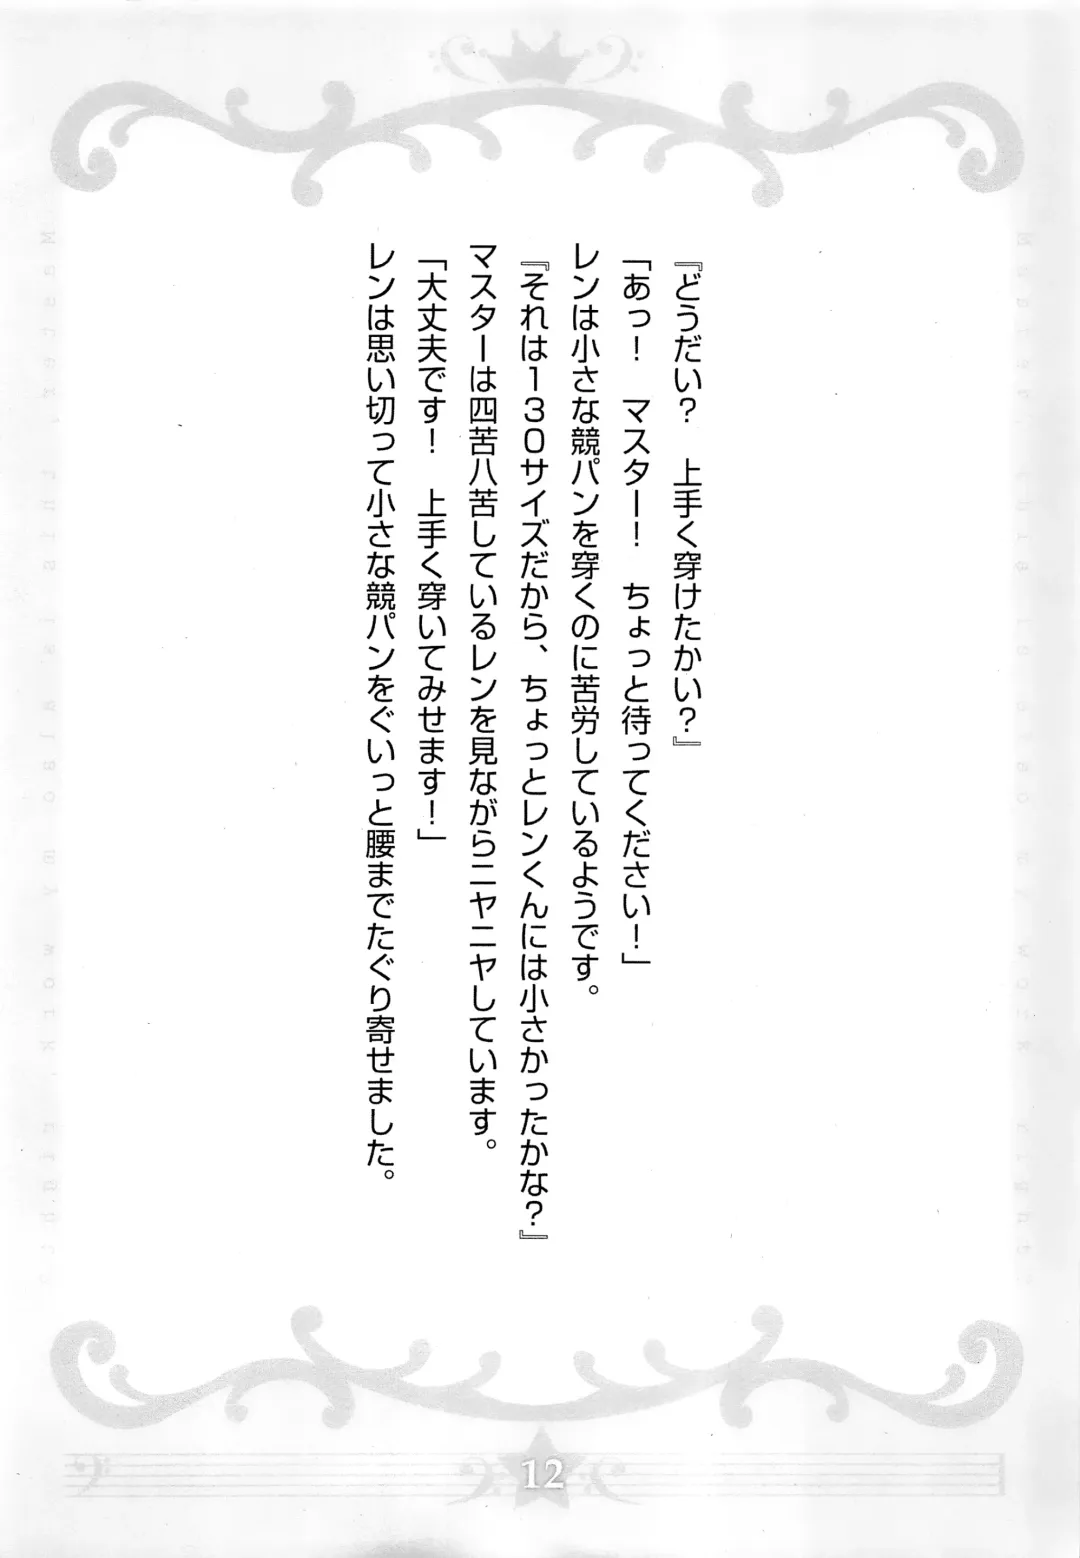 『どうだい？　上手く穿けたかい？』
「あっ！　マスター！　ちょっと待ってください！」
レンは小さな競パンを穿くのに苦労しているようです。
『それは130サイズだから、ちょっとレンくんには小さかったかな？』
マスターは四苦八苦しているレンを見ながらニヤニヤしています。
「大丈夫です！　上手く穿いてみせます！」
レンは思い切って小さな競パンをぐいっと腰までたぐり寄せました。
12